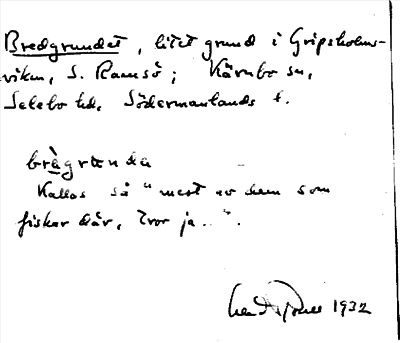 Bredgrundet, litet grund i Gripsholms-
viken, S. Ramsö; Kärnbo sn,
Selebo hd, Södermanlands l.
brègrunda
Kallas så "mest av dem som
fiskar där, tror ja..".
1932